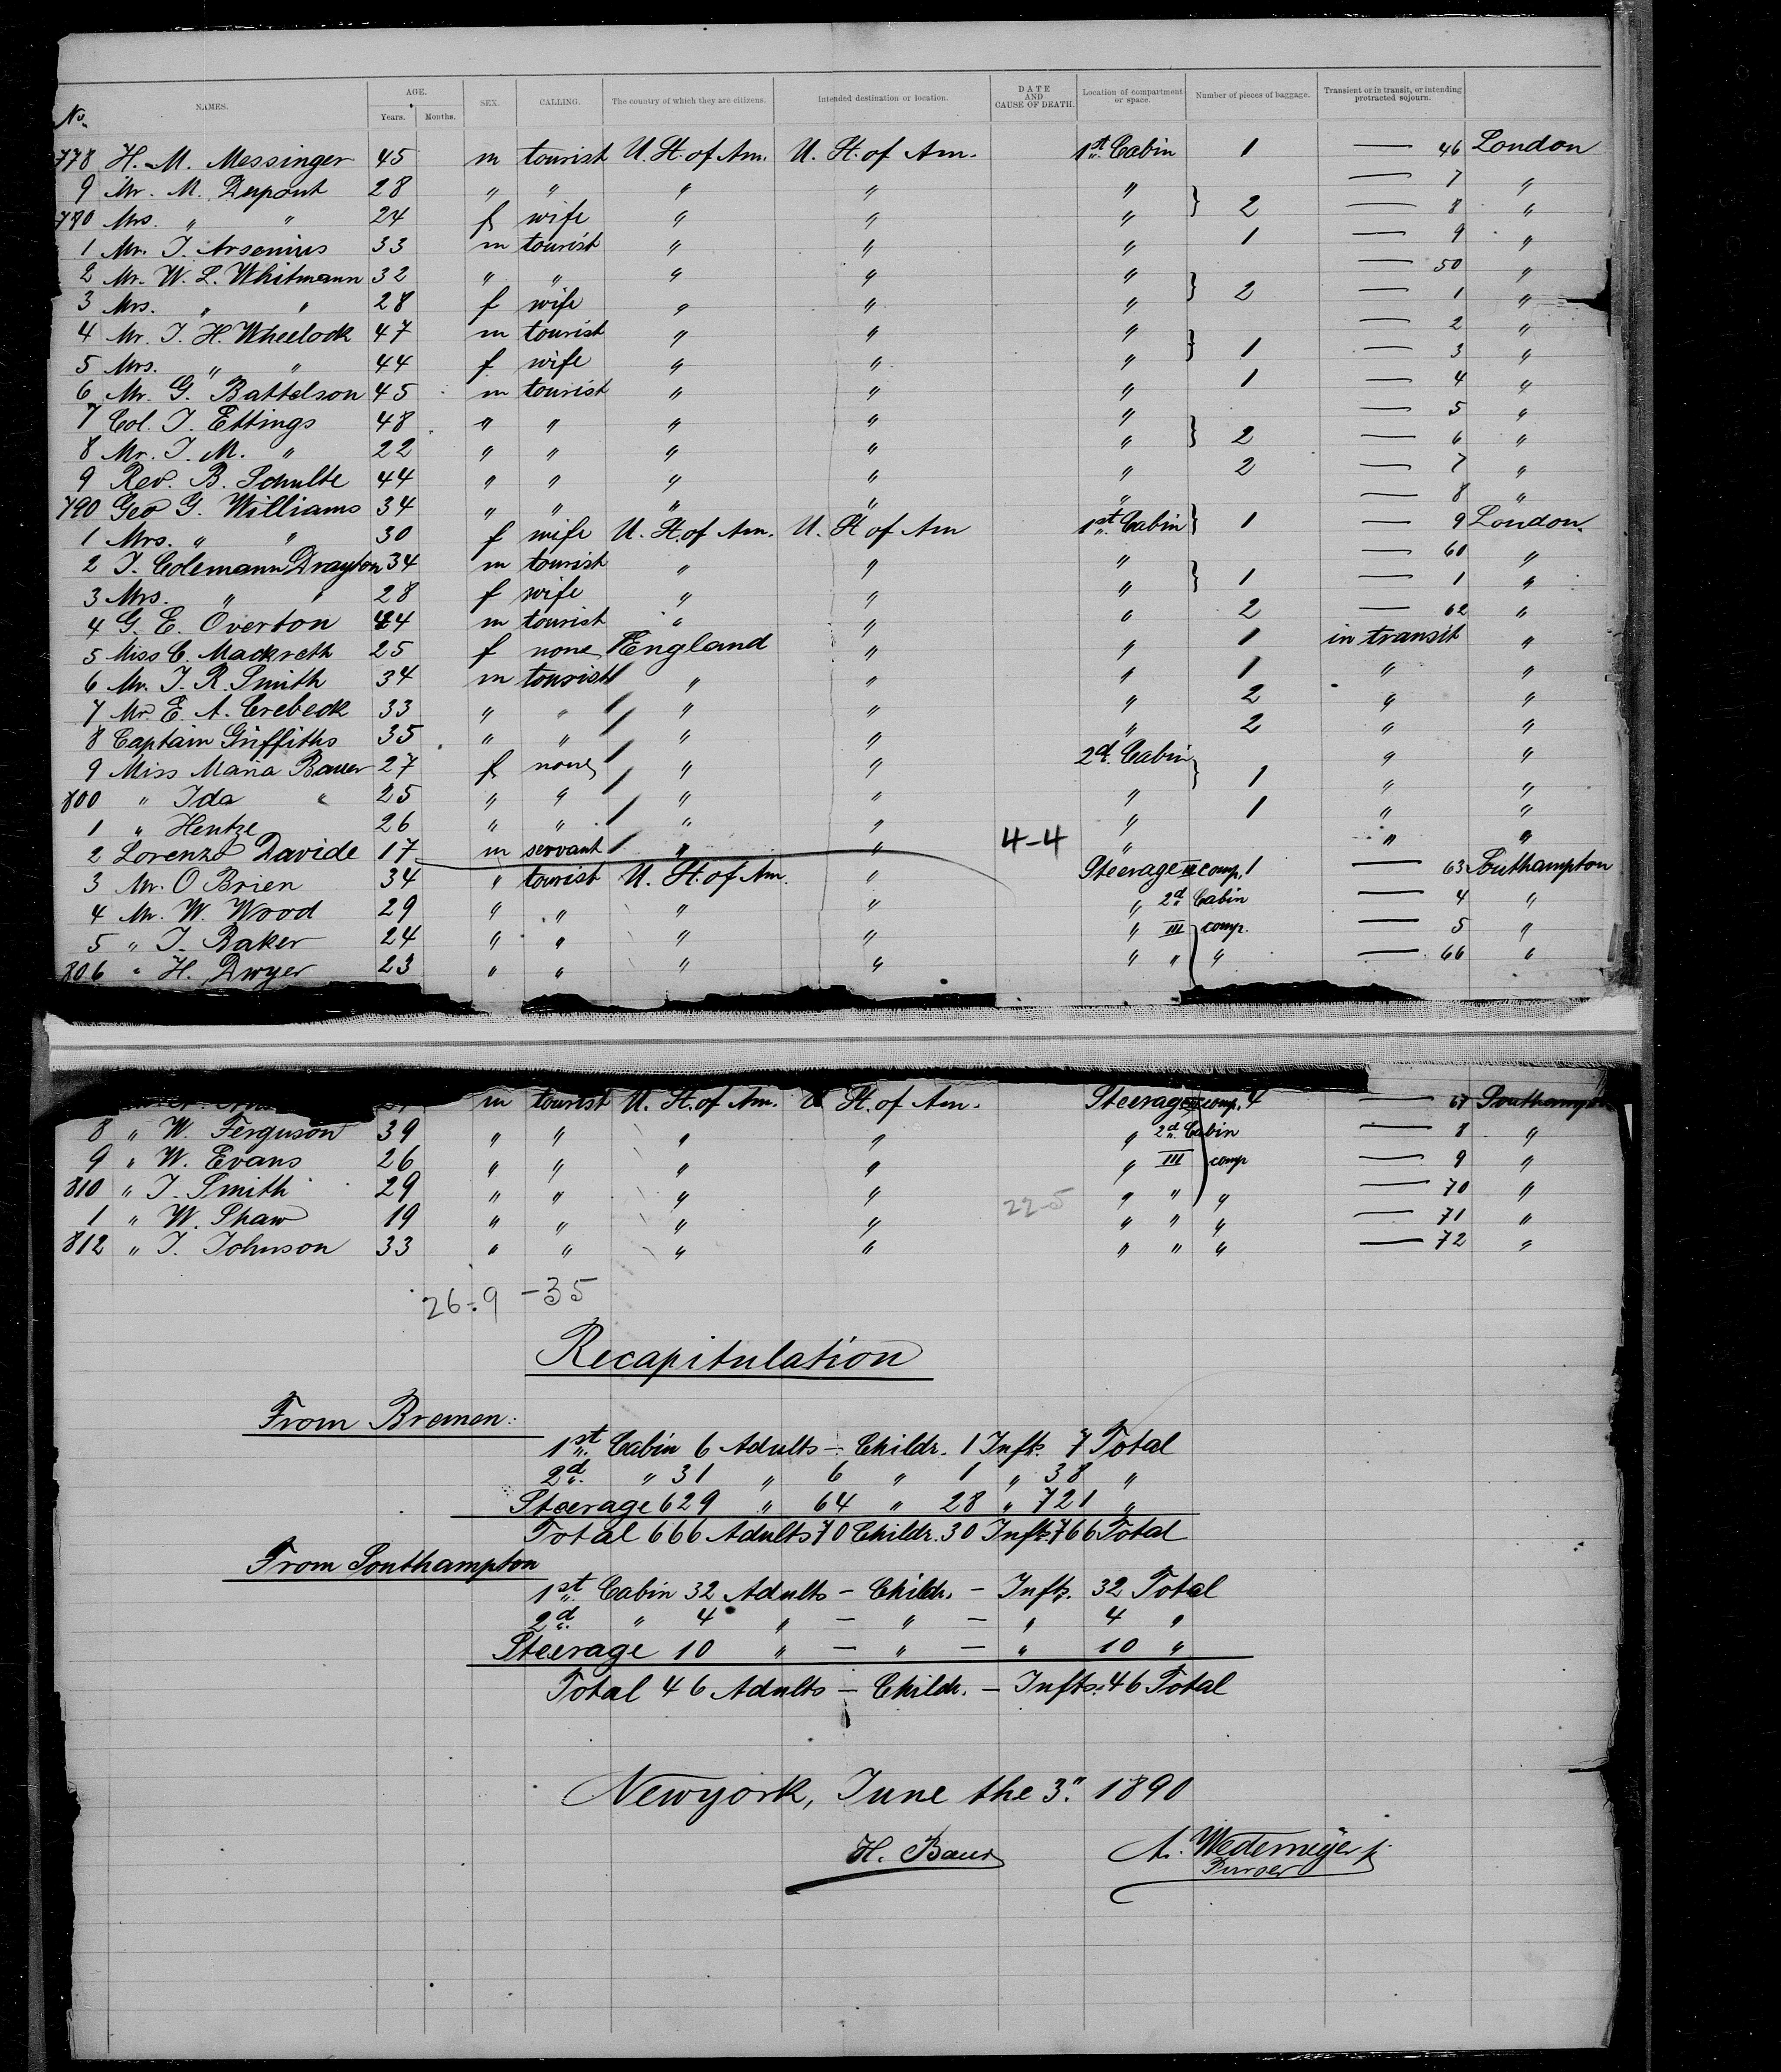 No. NAMES. AGE. Years. Months. SEX. CALLING. The country of which they are citizens. Intended destination or location. DATE AND CAUSE OF DEATH. Location of compartment or space. Number of pieces of baggage. Transient or in transit, or intending protracted sojourn.
778 H. M. Messinger 45 m tourist U. St. of Am. U. St. of Am. 1st Cabin 1 — 46 London
9 Mr. M. Dupont 28 " " " " " — 7 "
780 Mrs. " " 24 f wife " " " } 2 — 8 "
1 Mr. J. Arsenius 33 m tourist " " " 1 — 9 "
2 Mr. W. L. Whitmann 32 " " " " " — 50 "
3 Mrs. " " 28 f wife " " " } 2 — 1 "
4 Mr. J. H. Wheelock 47 m tourist " " " — 2 "
5 Mrs. " " 44 f wife " " " } 1 — 3 "
6 Mr. G. Battelson 45 m tourist " " " 1 — 4 "
7 Col. J. Ettings 48 " " " " " — 5 "
8 Mr. J. M. " 22 " " " " " } 2 — 6 "
9 Rev. B. Schulte 44 " " " " " 2 — 7 "
790 Geo G. Williams 34 " " " " " — 8 "
1 Mrs. " " 30 f wife U. St. of Am. U. St of Am 1st Cabin } 1 — 9 London.
2 J. Colemann Drayton 34 m tourist " " " — 60 "
3 Mrs. " " 28 f wife " " " } 1 — 1 "
4 G. E. Overton 44 m tourist " " " 2 — 62 "
5 Miss C. Mackreth 25 f none England " " 1 in transit "
6 Mr. J. R. Smith 34 m tourist " " " 1 " "
7 Mr. E. A. Crebeck 33 " " " " " 2 " "
8 Captain Griffiths 35 " " " " " 2 " "
9 Miss Maria Bauer 27 f none " " 2d Cabin " "
800 " Ida " 25 " " " " " } 1 " "
1 " Hentze 26 " " " " " 1 " "
2 Lorenzo Davide 17 m servant " " 4-4 " " "
3 Mr. O Brien 34 " tourist U. St. of Am. " Steerage II comp. 1 — 63 Southampton
4 Mr. W. Wood 29 " " " " " 2d Cabin — 4 "
5 " J. Baker 24 " " " " " III comp. — 5 "
806 " H. Dwyer 23 " " " " " " " — 66 "
m tourist U. St. of Am. U St. of Am. Steerage comp. 4 — 67
8 " W. Ferguson 39 " " " " " 2d Cabin — 8 "
9 " W. Evans 26 " " " " " III comp — 9 "
810 " J. Smith 29 " " " " " " " — 70 "
1 " W. Shaw 19 " " " " 22-5 " " " — 71 "
812 " J. Johnson 33 " " " " " " " — 72 "
26-9 -35
Recapitulation
From Bremen:
1st Cabin 6 Adults — Childr. 1 Infts. 7 Total
2d " 31 " 6 " 1 " 38 "
Steerage 629 " 64 " 28 " 721 "
Total 666 Adults 70 Childr. 30 Infts 766 Total
From Southampton
1st Cabin 32 Adults — Childr. — Infts. 32 Total
2d " 4 " — " — " 4 "
Steerage 10 " — " — " 10 "
Total 46 Adults — Childr. — Infts. 46 Total
Newyork, June the 3." 1890
H. Baur A. Wedemeyer jr.
Purser